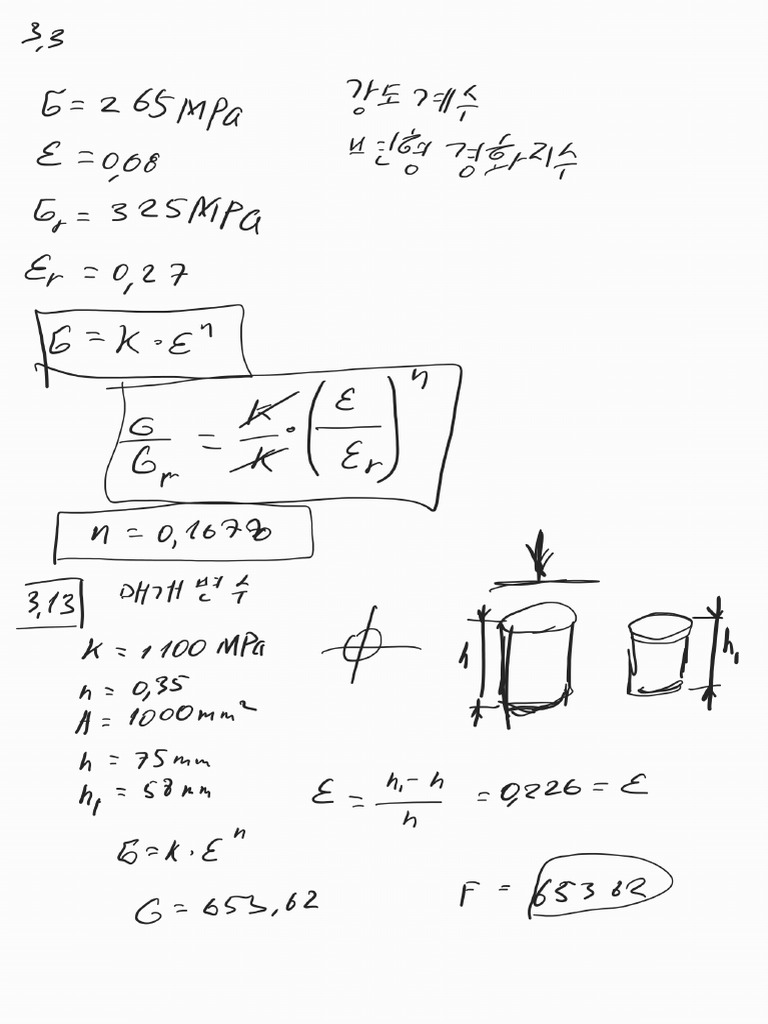 3,3
б = 265 MPa 강도계수
ε = 0,08 변형 경화지수
бr = 325 MPa
εr = 0,27
б = K · ε^n
б/бr = K/K · (ε/εr)^n
n = 0,1678
3,13 매개변수
K = 1100 MPa
n = 0,35
A = 1000 mm²
h = 75 mm
h₁ = 58 mm
h h₁
ε = (h₁ - h)/h = 0,226 = ε
б = K · ε^n
б = 653,62 F = 65362